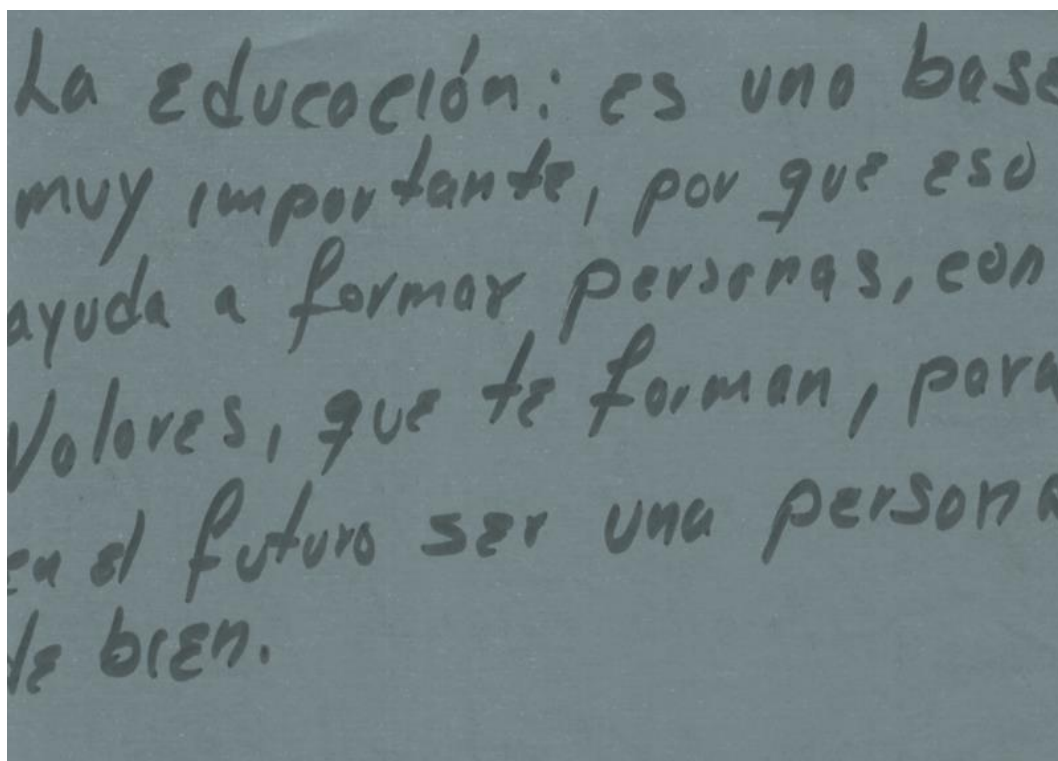 La Educación: es una base
muy importante, por que eso
ayuda a formar personas, con
Valores, que te forman, para
en el futuro ser una persona
de bien.